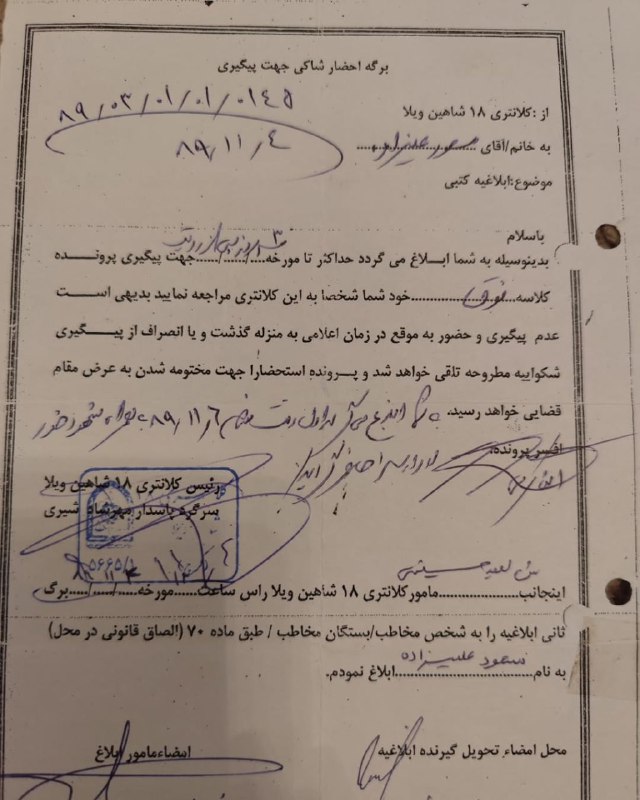 برگه احضار شاکی جهت پیگیری
از :کلانتری ۱۸ شاهین ویلا
۸۹/۰۳/۰۱/۰۱/۰۱۴۵
به خانم/آقای ........ مسعود علیزاده
۸۹/۱۱/۴
موضوع:ابلاغیه کتبی
باسلام
بدینوسیله به شما ابلاغ می گردد حداکثر تا مورخه..../..../....جهت پیگیری پرونده
کلاسه....فوق....خود شما شخصا به این کلانتری مراجعه نمایید بدیهی است
عدم پیگیری و حضور به موقع در زمان اعلامی به منزله گذشت و یا انصراف از پیگیری
شکواییه مطروحه تلقی خواهد شد و پرونده استحضارا جهت مختومه شدن به عرض مقام
قضایی خواهد رسید.
۸۹/۱۱/۶ بهمراه شهود خود
افسر پرونده:
رئیس کلانتری ۱۸ شاهین ویلا
سرگرد پاسدار مهرشاد شیری
اینجانب........مامور کلانتری ۱۸ شاهین ویلا راس ساعت......مورخه..../..../....برگ
ثانی ابلاغیه را به شخص مخاطب/بستگان مخاطب / طبق ماده ۷۰ (الصاق قانونی در محل)
به نام....مسعود علیزاده....ابلاغ نمودم.
محل امضاء تحویل گیرنده ابلاغیه
امضاءمامور ابلاغ